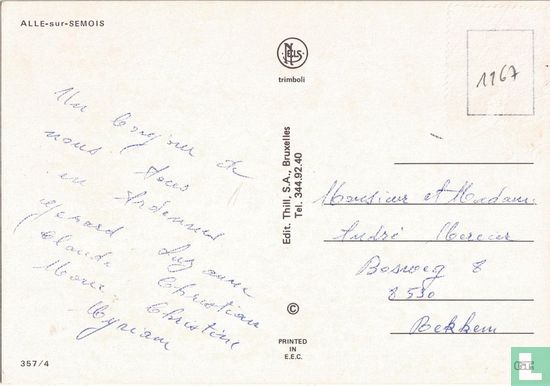 ALLE-sur-SEMOIS
NELS
trimboli
1167
Un bonjour de
nous tous
en Ardennes
Gerard Suzanne
Claude Christian
Marie Christine
Myriam
Edit. Thill, S.A., Bruxelles
Tel. 344.92.40
©
PRINTED
IN
E.E.C.
Monsieur et Madame
André Mereur
Bosweg 8
8530
Rekkem
357/4
Catawiki